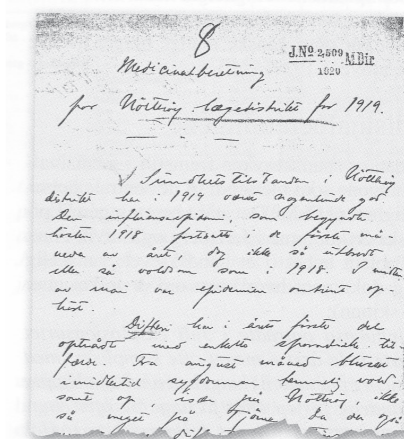 8
J.Nº 2,509 M.Dir
1920
Medicinalberetning
for Nötteröy lægedistrikt for 1919.
Sundhetstilstanden i Nötteröy
distrikt har i 1919 været nogenlunde god.
Den influensaepidemi, som begyndte
hösten 1918 fortsatte i de förste må-
neder av året, dog ikke så utbredt
eller så voldsom som i 1918. I midten
av mai var epidemien omtrent op-
hört.
Difteri har i årets förste del
optrådt med enkelte sporadiske til-
fælde. Fra august måned blusset
imidlertid sygdommen temmelig vold-
somt op, især på Nötteröy, ikke
så meget på Tjöme. Da der også